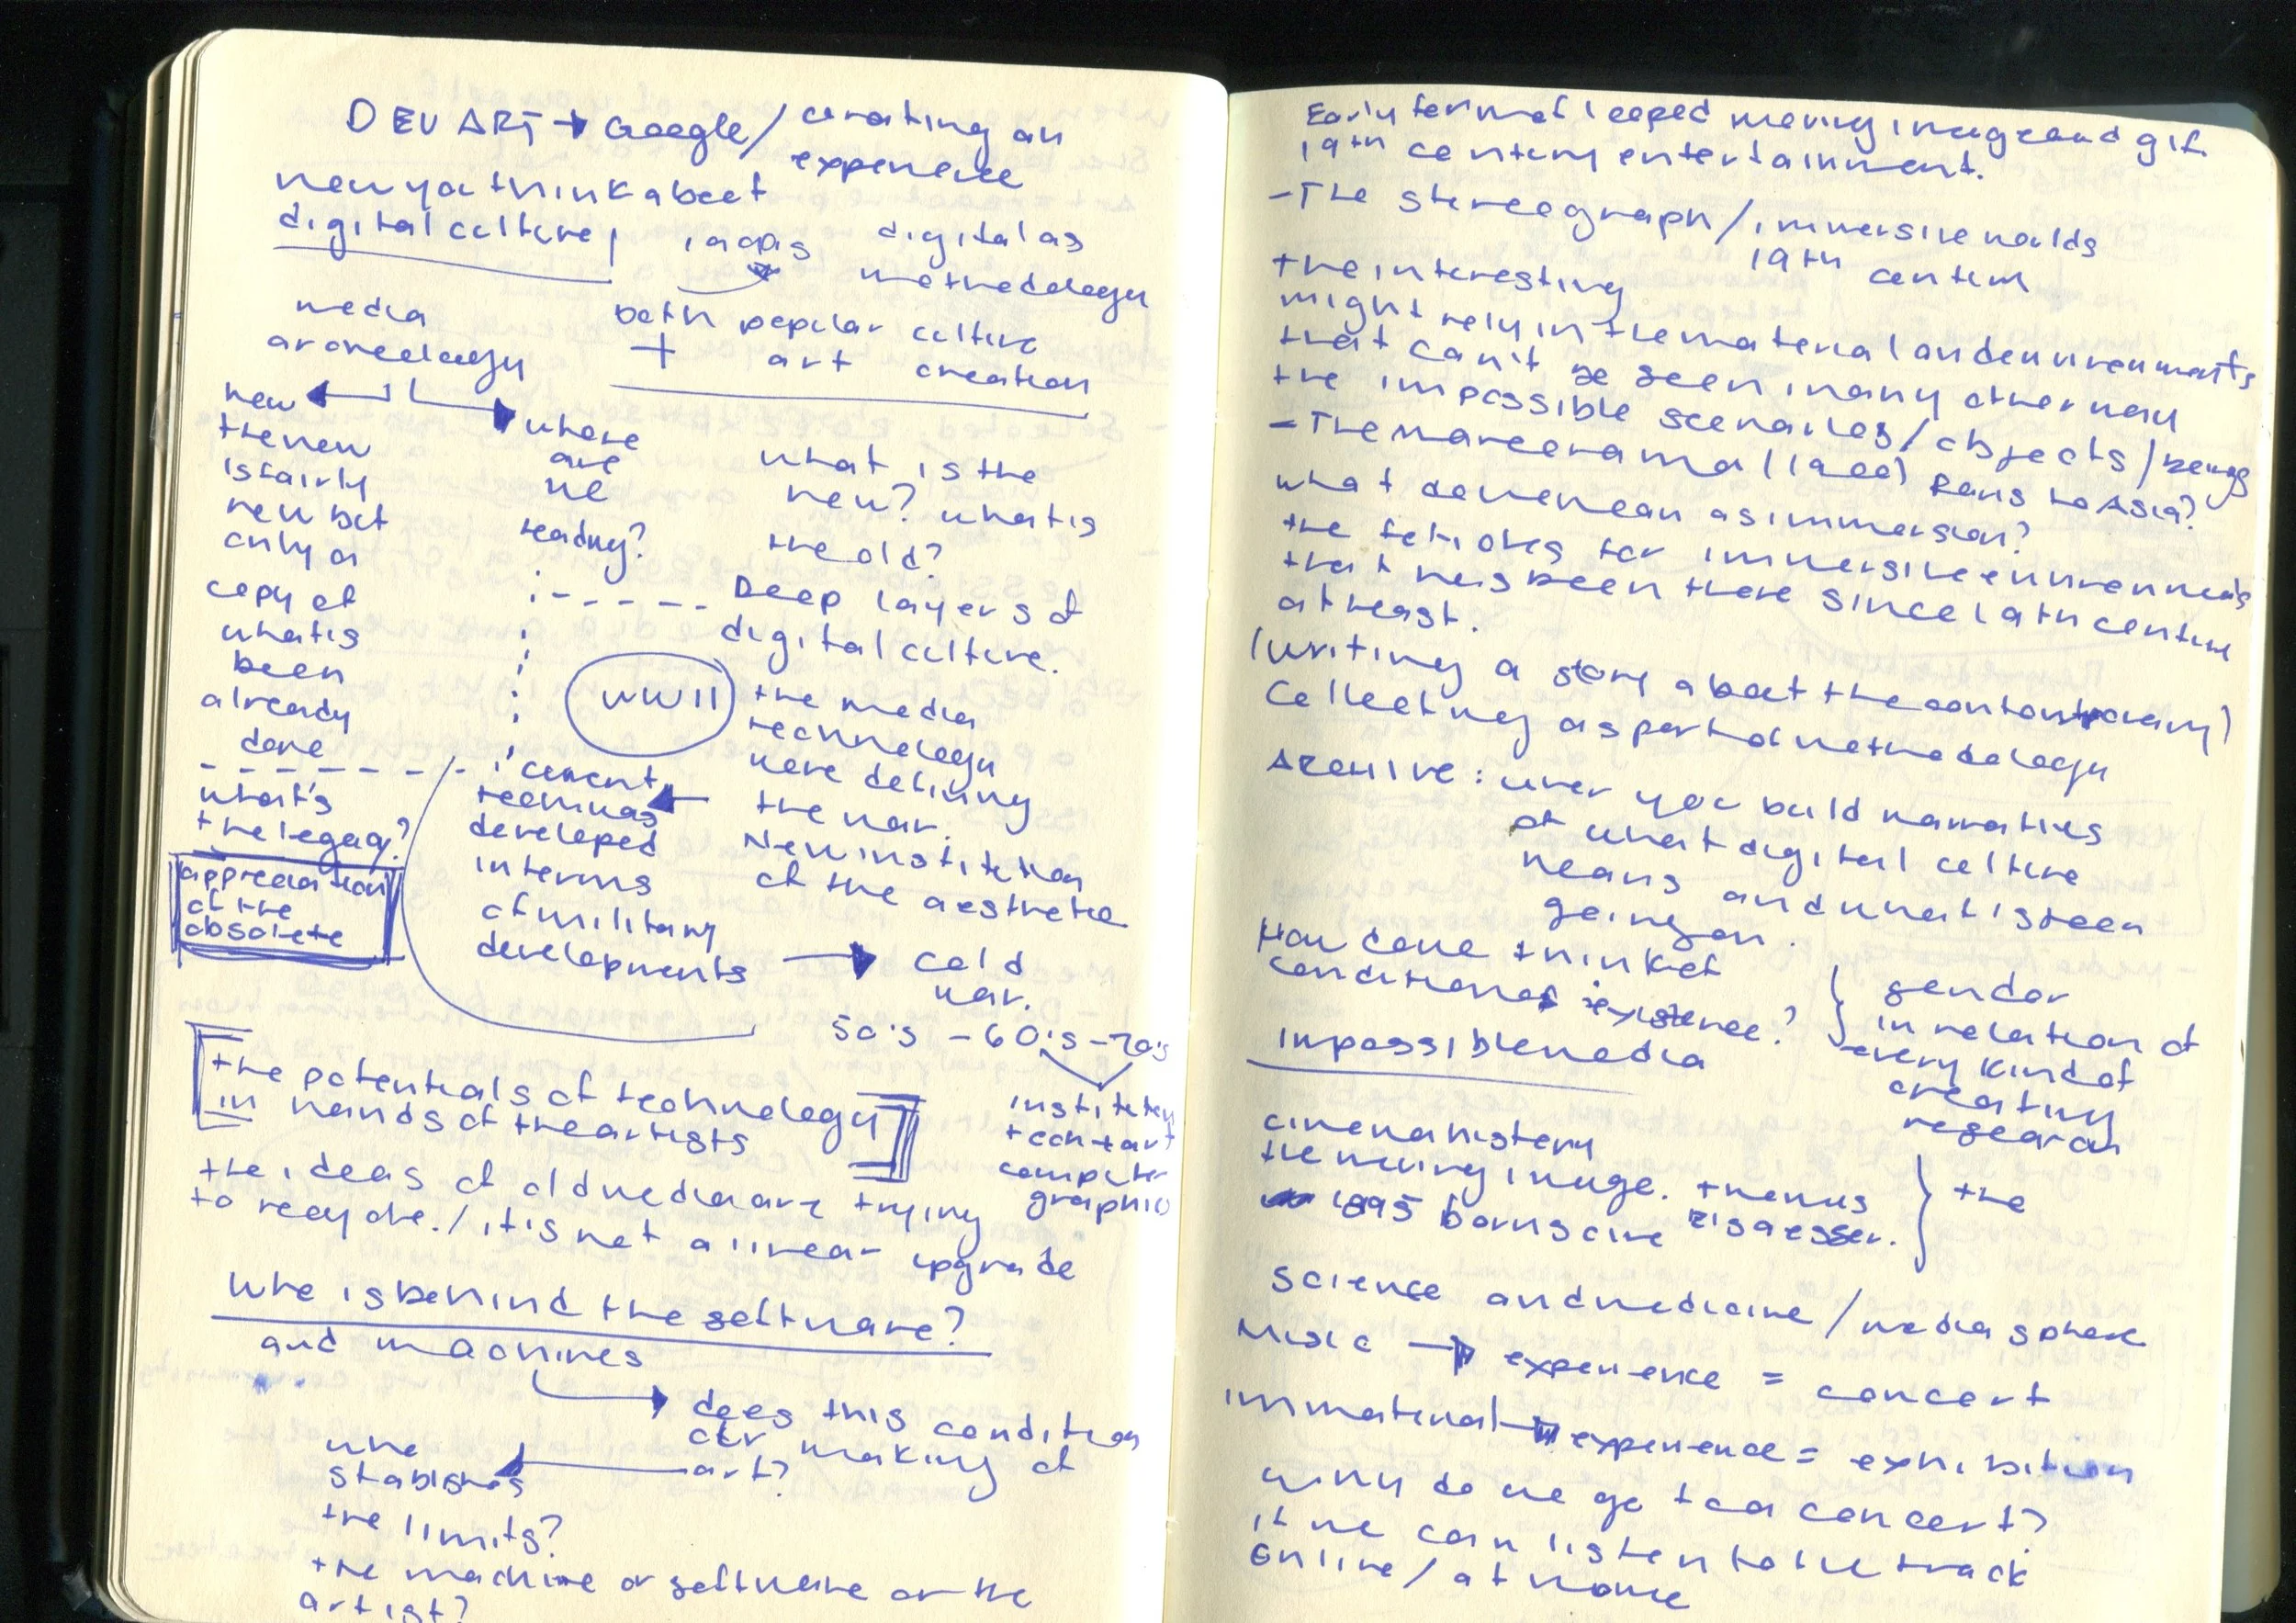 DEVART → Google / curating an
experience
how you think about
digital culture, digital as
methodology
media
archaeology
both popular culture
+ art creation
new
the new
is fairly
new but
only a
copy of
what is
been
already
done
what's
the legacy?
appreciation
of the
obsolete
where
are
we
heading?
what is the
new? what is
the old?
Deep layers of
digital culture.
WWII
the media
technology
were defining
the war.
New institution
of the aesthetic
developed
in terms
of military
developments → cold
war.
50's - 60's - 70's
institution
tech + art
computer
graphic
the potentials of technology
in hands of the artists
the ideas of old media are trying
to recycle. / it is not a linear upgrade
Who is behind the software?
and machines
does this condition
our making of
art?
who
stablishes
the limits?
the machine or software or the
artist?
Early form of looped moving image and gif.
19th century entertainment.
- The stereograph / immersive worlds
19th century
the interesting
might rely in the material and environments
that can't be seen in any other way
the impossible scenarios / objects / beings
- The mareorama (1900) Paris to Asia?
what do we mean as immersion?
the fetishes for immersive environments
that has been there since 19th century
at least.
(writing a story about the contemporary)
Collecting as part of methodology
Archive: when you build narratives
of what digital culture
means and what is been
going on.
How do we think of
conditions of existence?
gender
in relation of
every kind of
creating
research
Impossible media
cinema history
the moving image.
1895 the
science and medicine / media sphere
Music → experience = concert
immaterial → experience = exhibition
Why do we go to a concert?
if we can listen to the track
online / at home